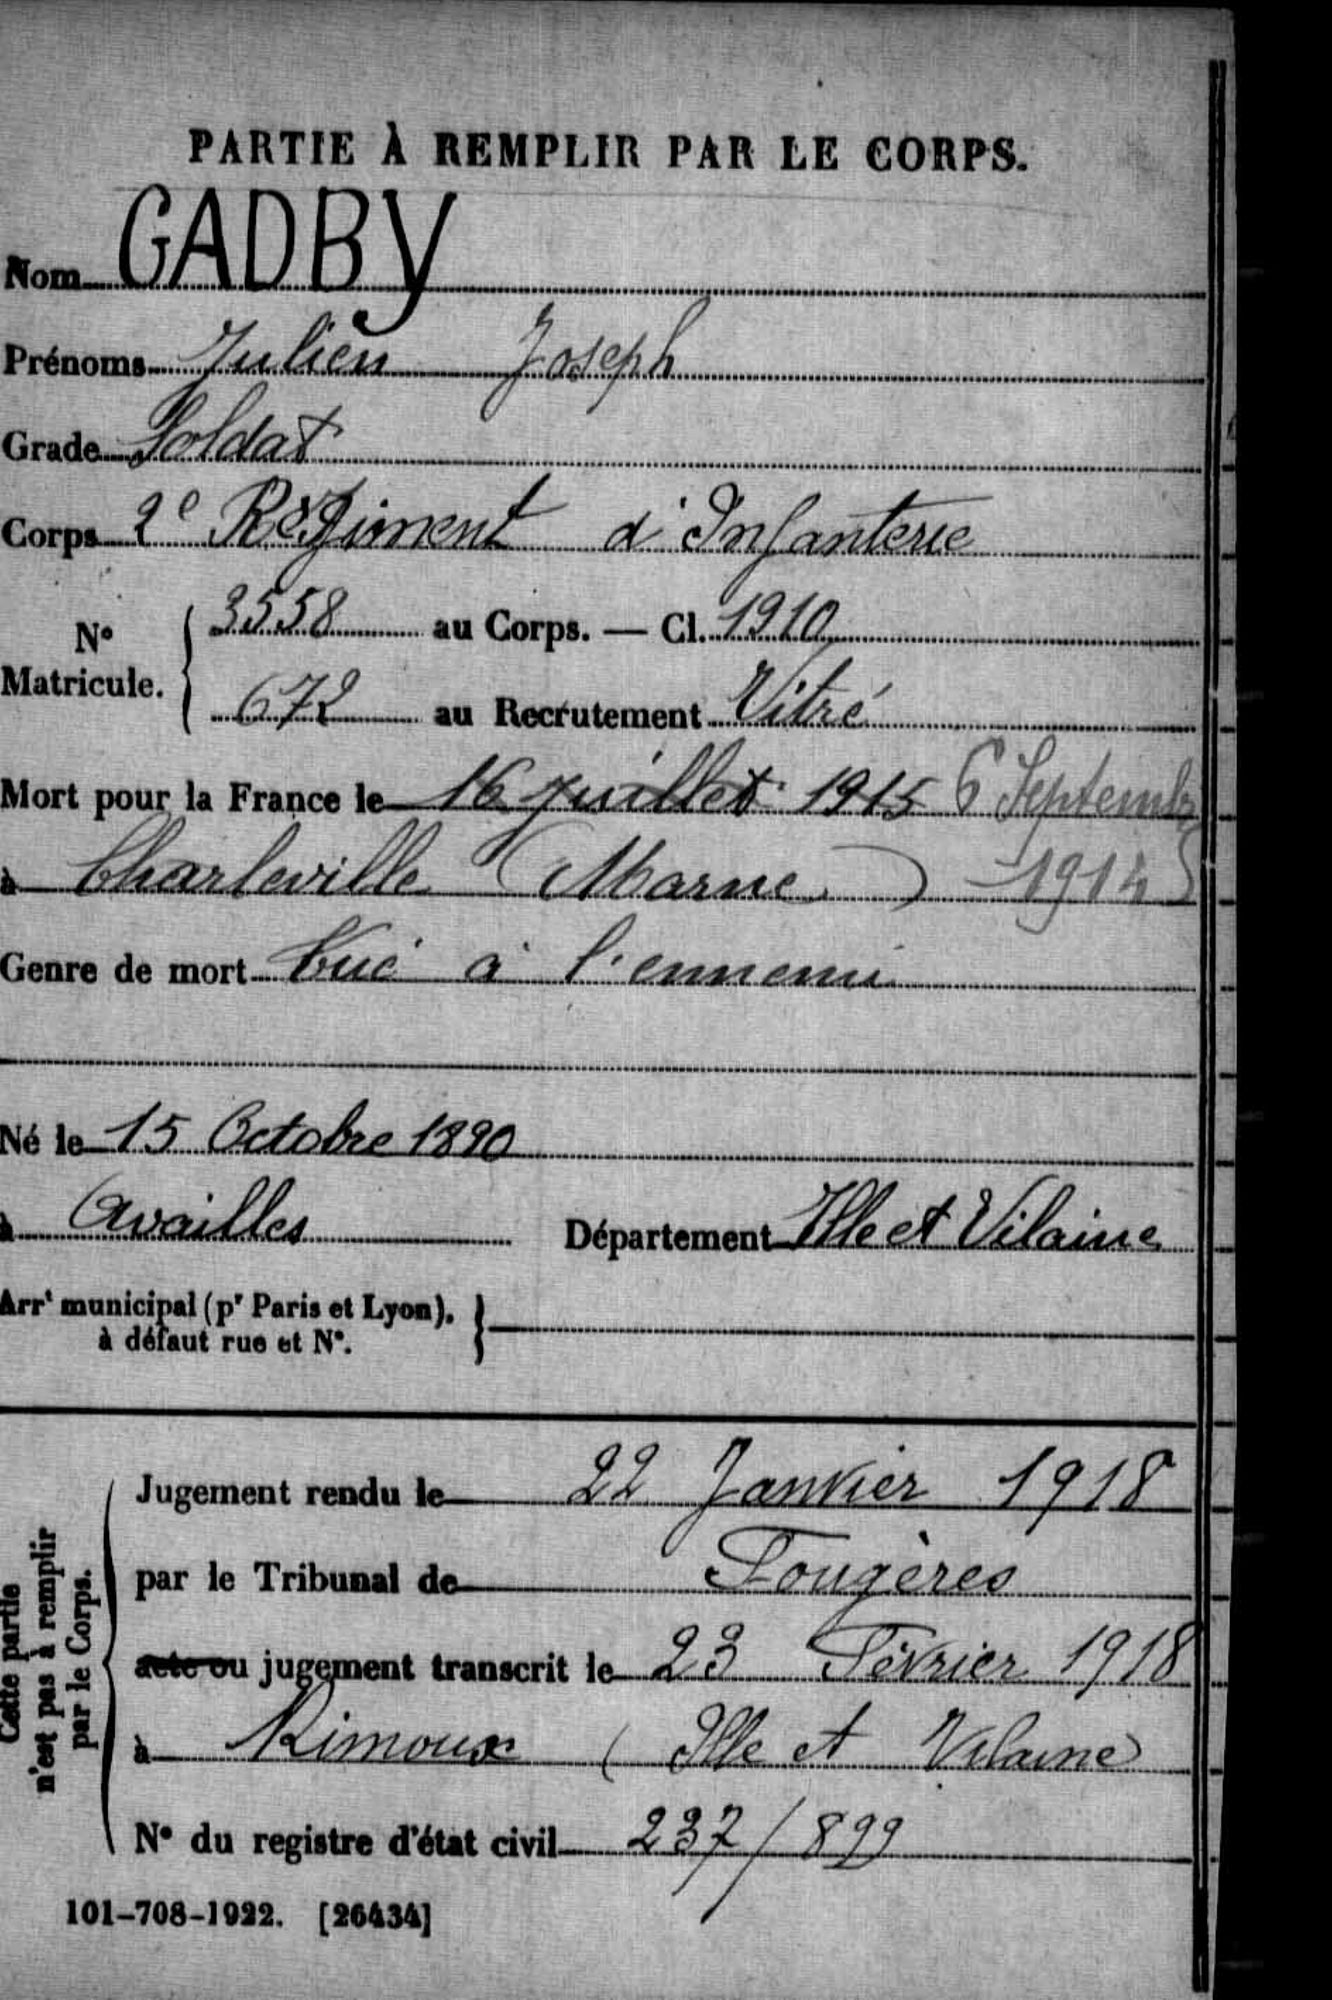 PARTIE À REMPLIR PAR LE CORPS.
Nom GADBY
Prénoms Julien Joseph
Grade Soldat
Corps 2e Régiment d'Infanterie
N° Matricule. { 3558 au Corps. — Cl. 1910
672 au Recrutement Vitré
Mort pour la France le 16 Juillet 1915 6 Septembre
à Charleville (Marne) 1914
Genre de mort tué à l'ennemi
Né le 15 Octobre 1890
à Availles Département Ille et Vilaine
Arrt municipal (pr Paris et Lyon), }
à défaut rue et N°.
Cette partie
n'est pas à remplir
par le Corps.
Jugement rendu le 22 Janvier 1918
par le Tribunal de Fougères
acte ou jugement transcrit le 23 Février 1918
à Rimoux (Ille et Vilaine)
N° du registre d'état civil 237/899
101-708-1922. [26434]